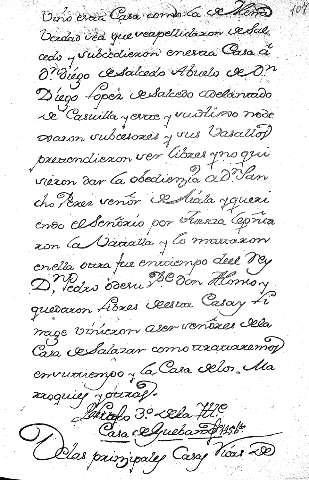 104
Vino esta Casa como la de
Verdad sea que se apellidaron de Sal
cedo y subcedieron en esta Casa à
Dⁿ Diego de Salcedo Abuelo de Dⁿ
Diego Lopez de Salcedo adelantado
de Castilla y este y su ultimo no de
xaron subcesores y sus Vasallos
pretendieron ser libres y no qui
sieron dar la obediençia a Dⁿ San
cho Perez señor de Aiala y queri
endo el Señorio por fuerza
ron la Vatalla y lo mataron
en ella esta fue en tiempo del Rey
Dⁿ Pedro ò de su Pᵉ Don Alonso y
quedaron libres de esta Casa y Li
nage vinieron a ser señores de la
Casa de Salazar como trataremos
en su tiempo y la Casa de los Ma
rroquies y otras.
Titulo 3º de la Illᵉ
Casa de Guebara
De las prinzipales Casas Vias de